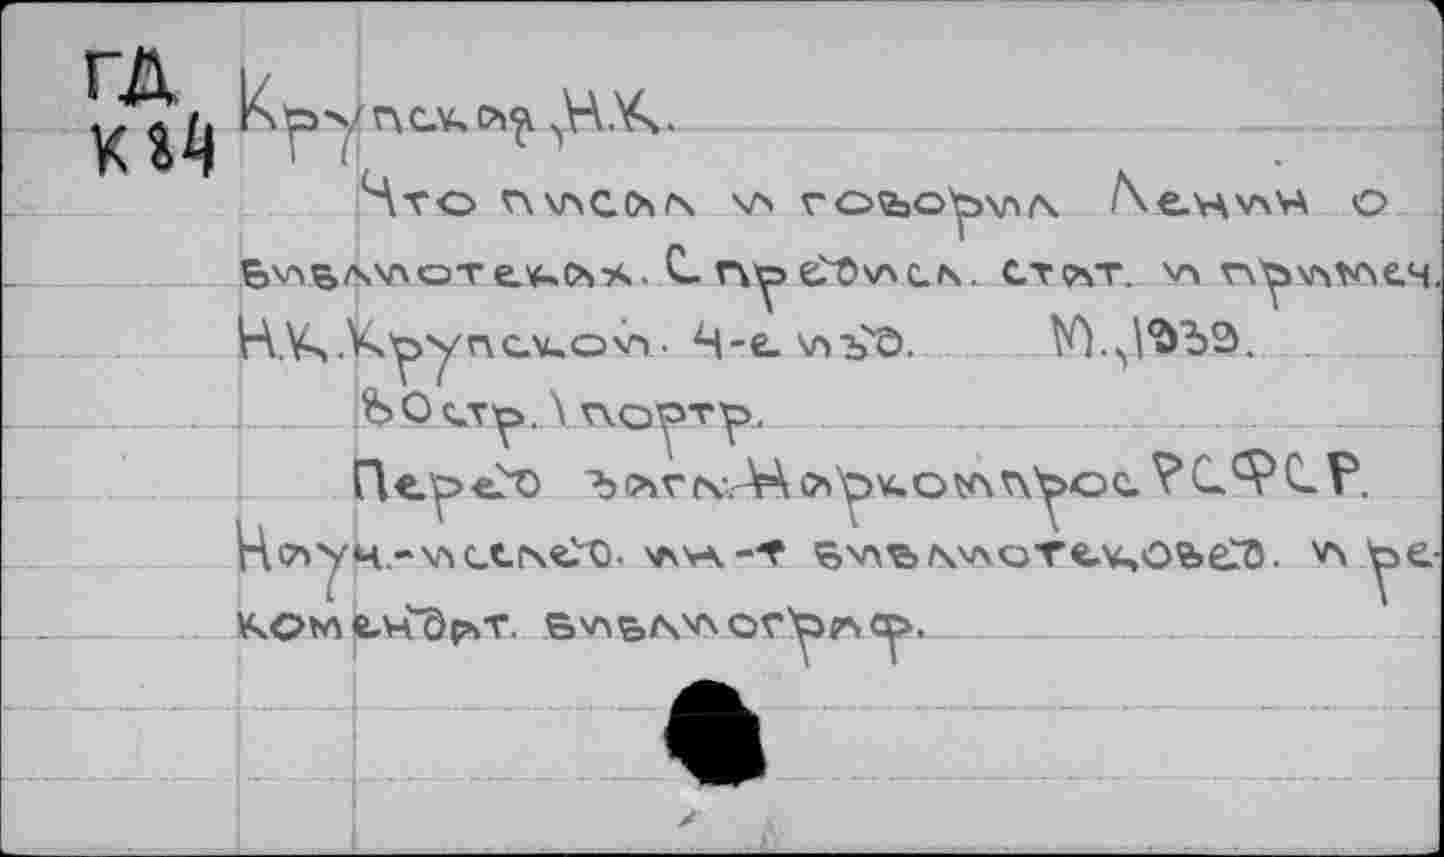 ГД
К84
Крупская, Н.К.
Что писал и говорил Ленин о
библиотеках. С предисл. стат. и примеч.
Н.К.Крупской. 4-е изд. М.,1933.
80 стр. 1 портр.
Перед загл: Наркомпрос РСФСР.
Науч.-исслед. ин-т библиотековед. и ре-
комендат. библиограф.